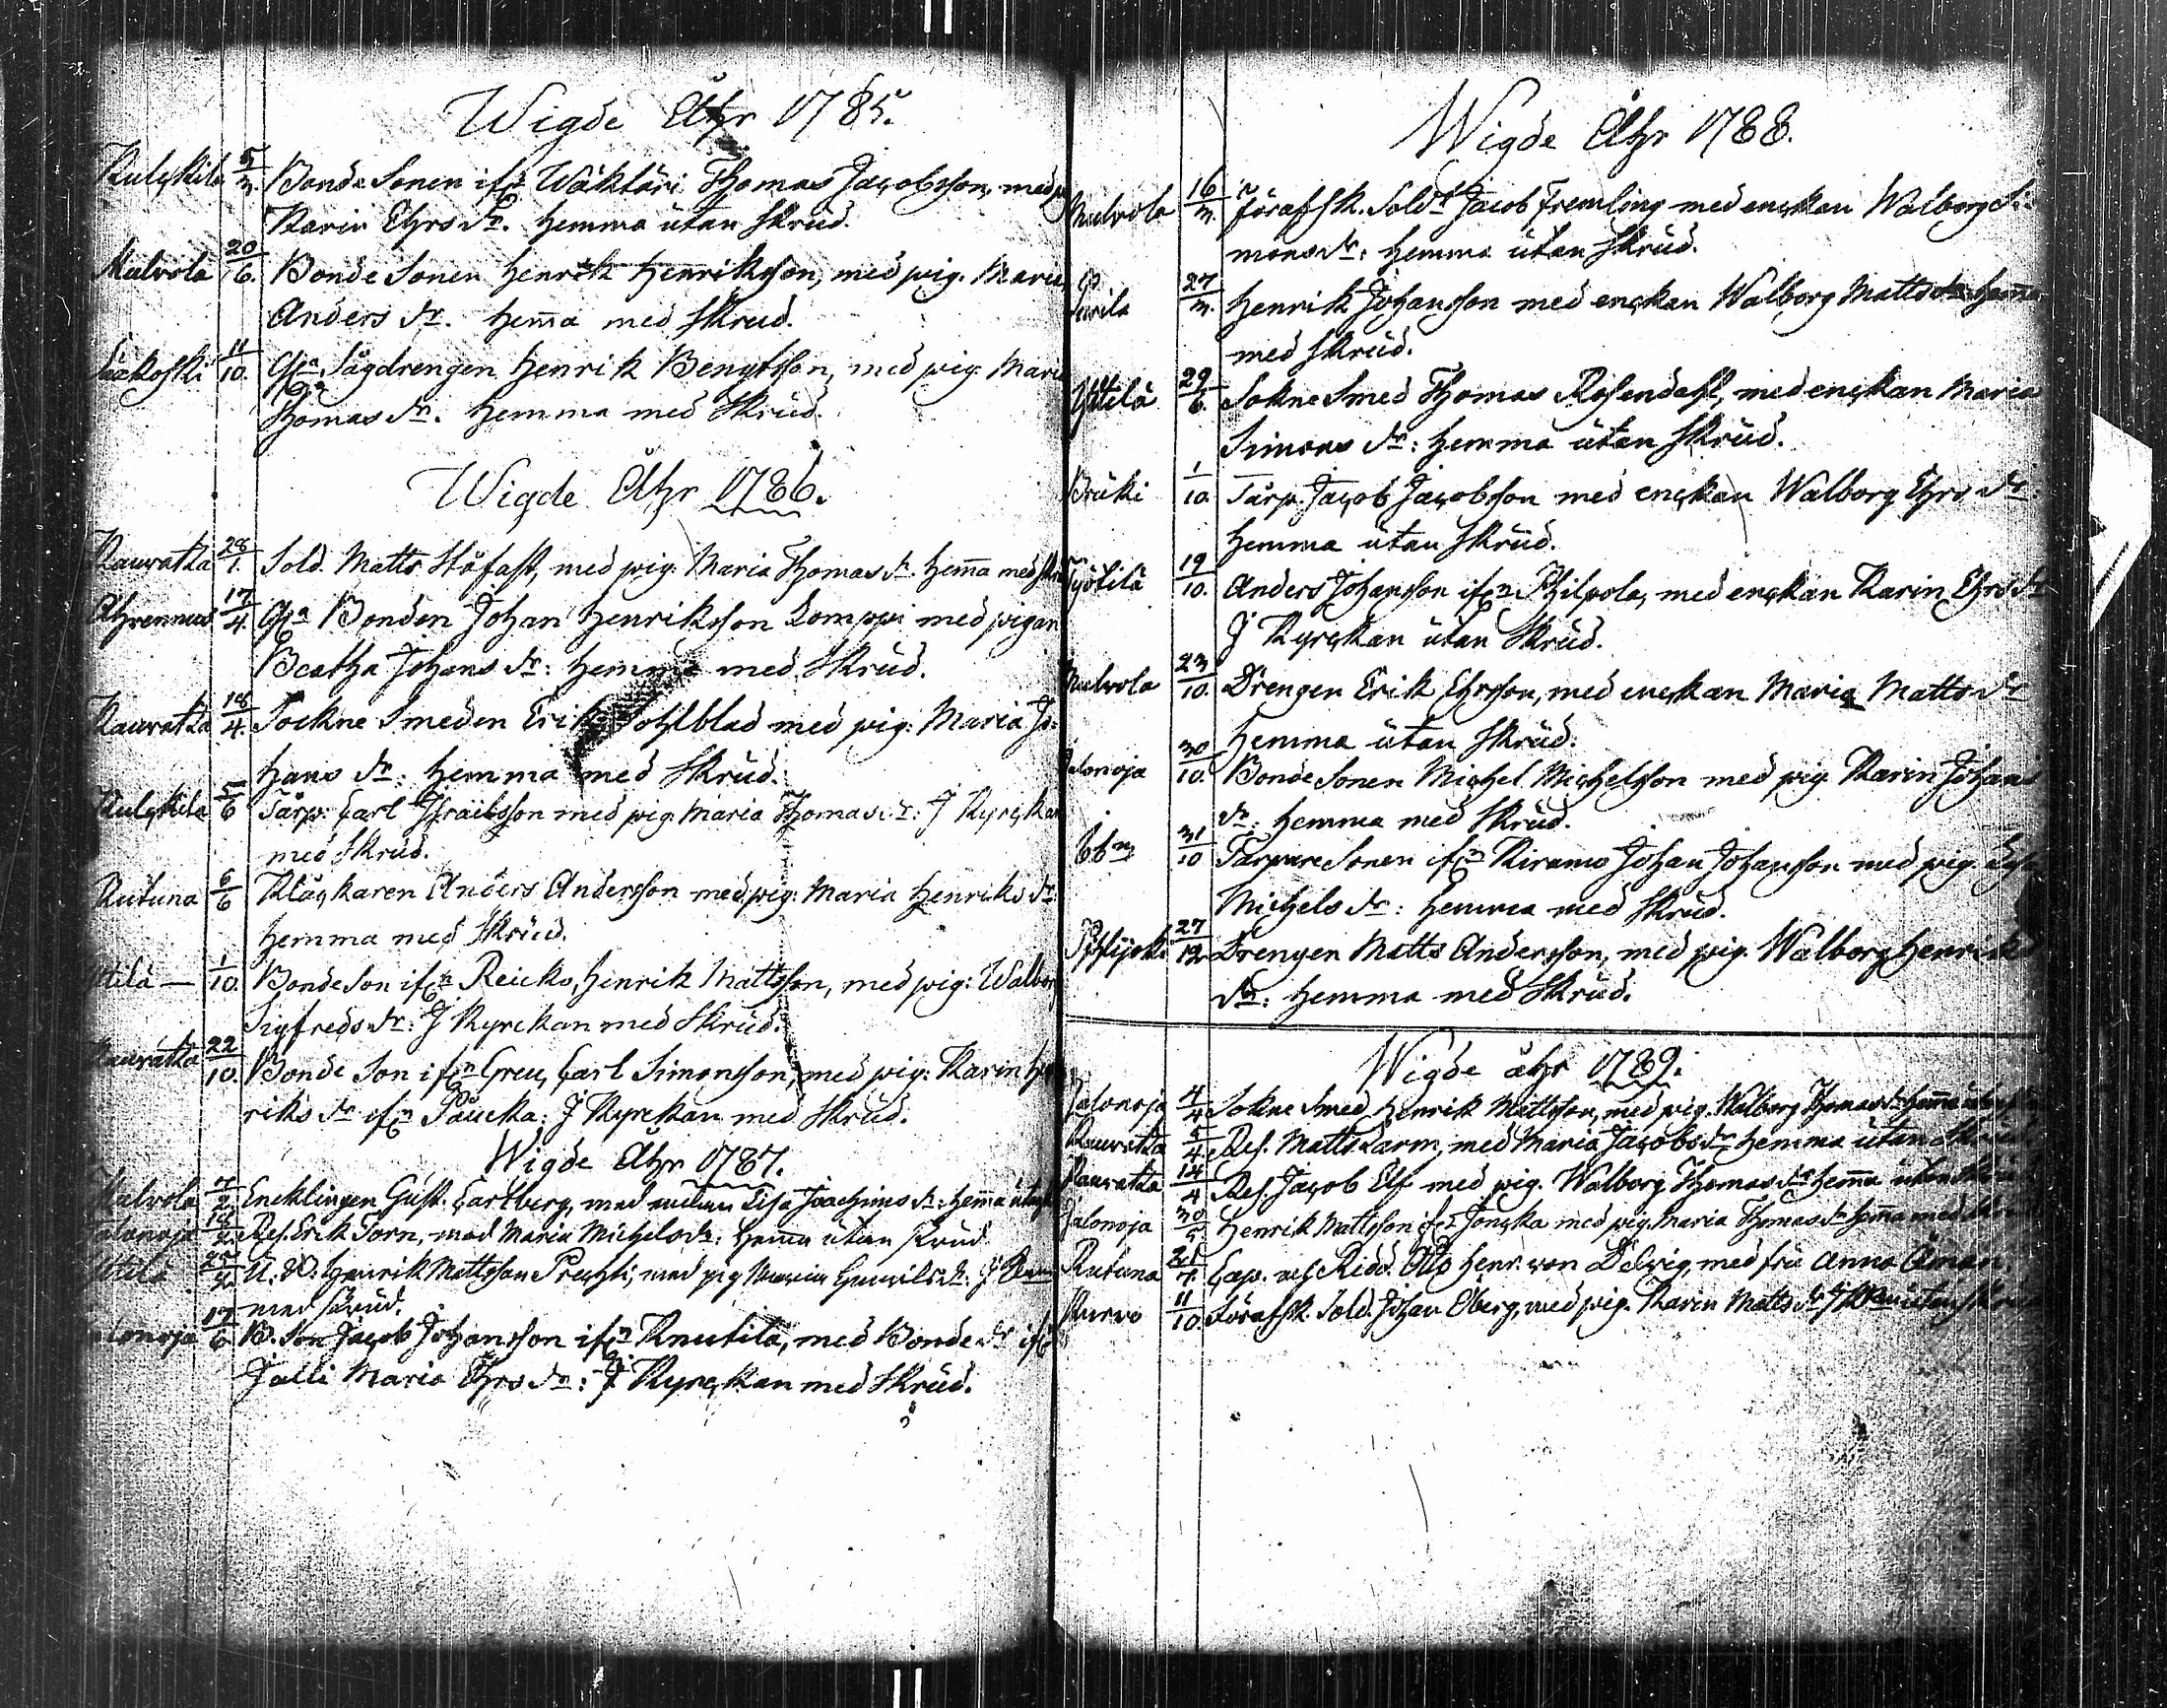 Wigde Åhr 1785.
Kulckila 5/3. Bonde Sonen ifrn Wäktäri Thomas Jacobsson, med
Karin Ehrs dr. hemma utan Skrud.
Mulvola 20/6. Bonde Sonen Henrik Henriksson, med pig. Maria
Anders dr. hema med Skrud.
11/10. Sågdrengen Henrik Bengtsson, med pig. Maria
Thomas dr. hemma med Skrud.
Wigde Åhr 1786.
Kauvatka 28/1. Sold. Matts Ståfast, med pig. Maria Thomas dr. hema med
17/4. Gla Bonden Johan Henriksson Lomppi med pigan
Beatha Johans dr: hemma med Skrud.
Kauvatka 18/4. Sockne Smeden Erik Sohlblad med pig: Maria Jo-
hans dr: hemma med Skrud.
Kulckila 5/6 Tårp: Carl Israelsson med pig. Maria Thomas dr: J Kyrckan
med Skrud.
Rutuna 6/6 Klåckaren Anders Andersson med pig: Maria Henriks dr:
hemma med Skrud.
1/10. Bonde Son ifrn Reicko, Henrik Mattsson, med pig: Walborg
Sigfreds dr: J Kyrckan med Skrud.
Kauvatka 22/10. Bonde Son ifrn Greu, Carl Simonsson, med pig: Karin Hen
riks dr ifrn Paucka: J Kyrckan med Skrud.
Wigde Åhr 1787.
Mulvola Encklingen Gust. Carlberg, med Lisa Joachims dr: hema
Jalonoja Res. Erik Torn, med Maria Michels dr: hema utan Skrud
Henrik Mattsson med pig
med Skrud.
Jalonoja 17/6 B. Son Jacob Johansson ifrn Knutila, med Bonde dr ifrn
Jalli Maria Ehrs dr: J Kyrckan med Skrud.
Wigde Åhr 1788.
Mulvola 16/3. förafsk. Soldt Jacob Fremling med enckan Walborg Si-
mons dr: hemma utan Skrud.
27/3. Henrik Johansson med enckan Walborg Matts dr hema
med Skrud.
29/6. Sokne Smed Thomas Rosendahl, med enckan Maria
Simons dr: hemma utan Skrud.
Bruki 1/10. Tårp. Jacob Jacobsson med enckan Walborg Ehrs dr:
hemma utan Skrud.
Työtilä 19/10. Anders Johansson ifrn Philpola, med enckan Karin Ehrs dr
J Kyrckan utan Skrud.
Mulvola 23/10. Drengen Erik Ehrsson, med enckan Maria Matts dr
hemma utan Skrud.
Jalonoja 30/10. Bonde Sonen Michel Michelsson med pig. Karin Johans
dr: hemma med Skrud.
31/10 Tårpare Sonen ifrn Kiramo Johan Johansson med pig.
Michels dr: hemma med Skrud.
27/12. Drengen Matts Andersson, med pig. Walborg Henriks
dr: hemma med Skrud.
Wigde åhr 1789.
Jalonoja 4/4 Sokne Smed Henrik Mattsson, med pig. Walborg Thomas dr hema
Kauvatka 5/4 Res. Matts Larm, med Maria Jacobs dr hemma utan Skrud
Kauvatka 14/4 Res. Jacob Elf med pig. Walborg Thomas dr hema utan
Jalonoja 30/5 Henrik Mattsson ifrn Joncka med pig. Maria Thomas dr hema med Skrud
Rutuna Cap. och Ridd. Otto Henr. von Delvig, med fru Anna Åman.
Kurvo 11/10. Förafsk. Sold. Johan Öberg, med pig. Karin Matts dr